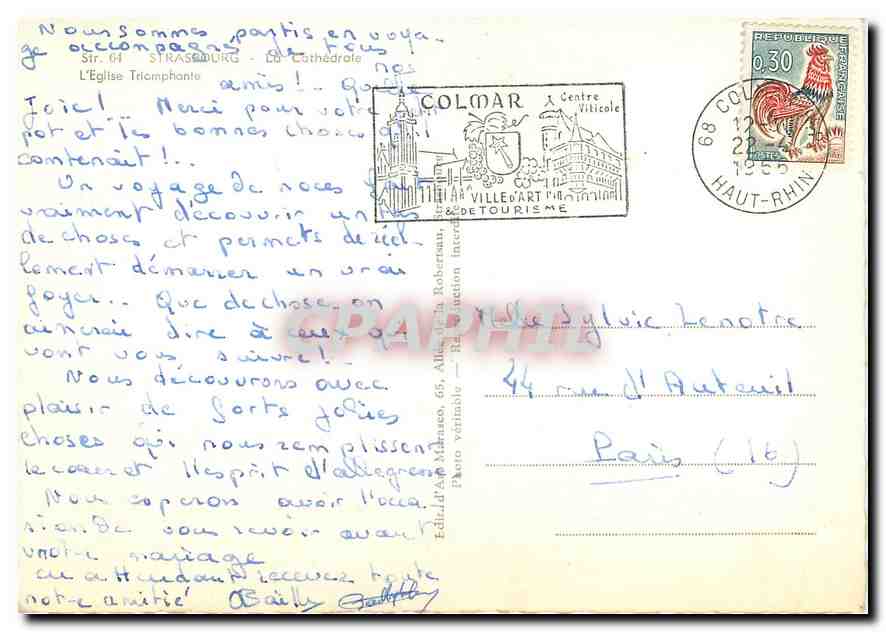 Nous sommes partis en voya-
ge accompagnés de tous
nos
amis!.. Quelle
Joie! Merci pour votre
pot et les bonnes choses qu'il
contenait!..
Un voyage de noces fait
vraiment découvrir un tas
de choses et permets de réel-
lement démarrer un vrai
foyer.. Que de choses on
aimerai dire à ceux qui
vont vous suivre!
Nous découvrons avec
plaisir de forts jolies
choses qui nous remplissent
le cœur et l'esprit d'allegresse
Nous esperons avoir l'occa-
sion de vous revoir avant
votre mariage
en attendant recevez toute
notre amitié Bailly
Str. 64 STRASBOURG - La Cathédrale
L'Eglise Triomphante
COLMAR
Centre
Viticole
VILLE D'ART
& DE TOURISME
68 COLMAR
22-4
1966
HAUT-RHIN
REPUBLIQUE FRANÇAISE
0,30
POSTES
Edit. d'Art Marasco, 65, Allée de la Robertsau, Strasbourg
Photo véritable — Reproduction interdite
CPAPHIL
Mlle Sylvie Lenotre
44 rue d'Auteuil
Paris (16)